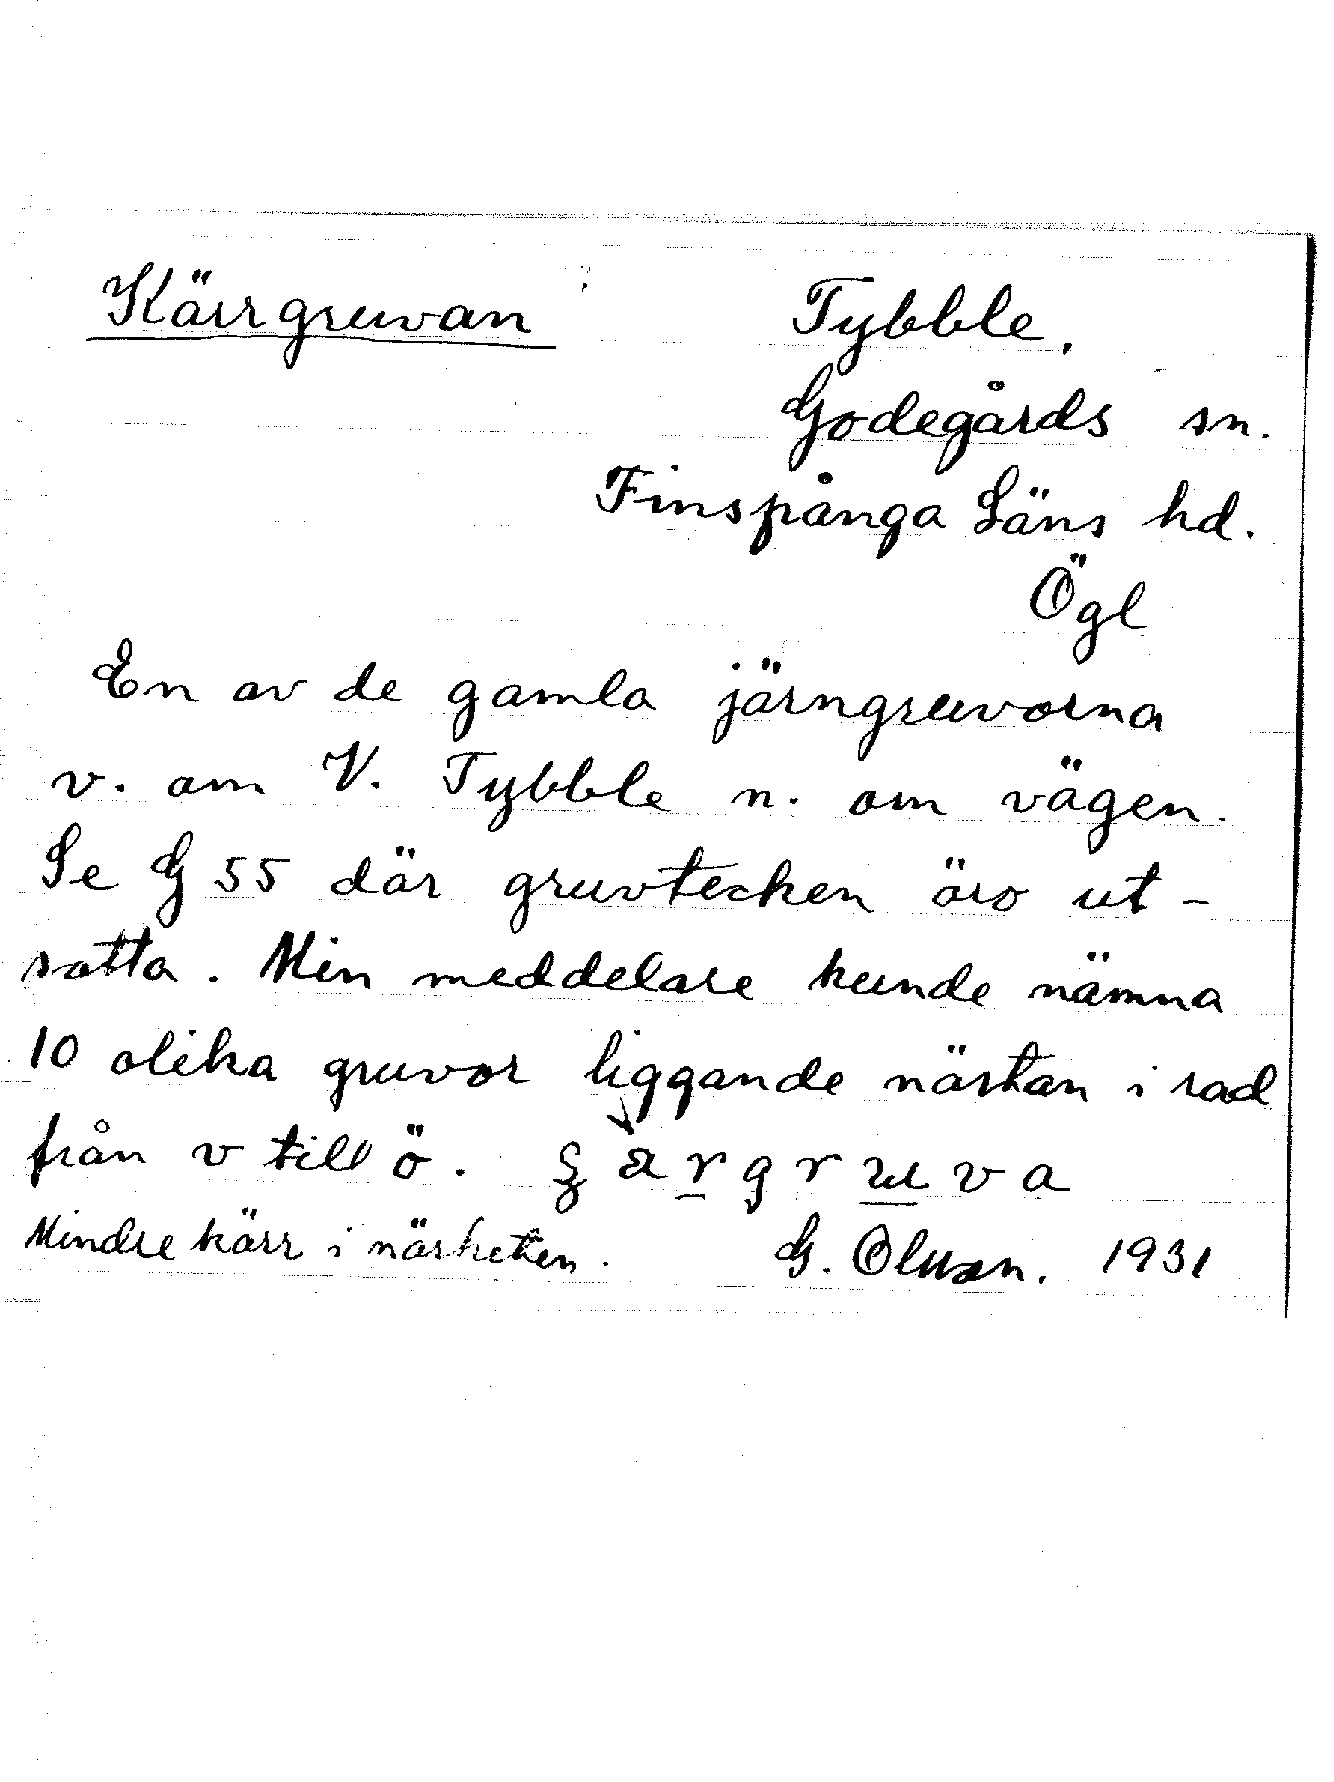 Kärrgruvan
Tybble.
Godegårds sn.
Finspånga Läns hd.
Ögl
En av de gamla järngruvorna
v. om V. Tybble n. om vägen.
Se G 55 där gruvtecken äro ut-
satta. Min meddelare kunde nämna
10 olika gruvor liggande nästan i rad
från v till ö.
Mindre kärr i närheten.
G. Olsson. 1931